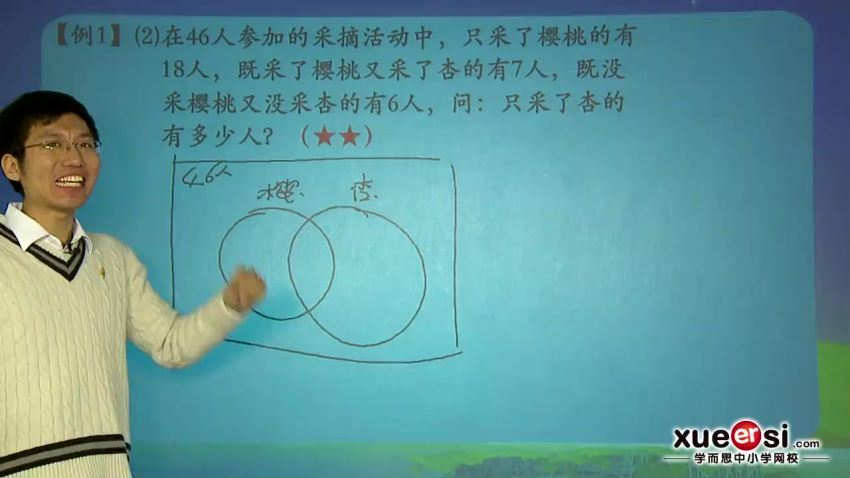 【例1】(2)在46人参加的采摘活动中，只采了樱桃的有
18人，既采了樱桃又采了杏的有7人，既没
采樱桃又没采杏的有6人，问：只采了杏的
有多少人？（★★）
46人
樱 杏
xueersi.com
学而思中小学网校